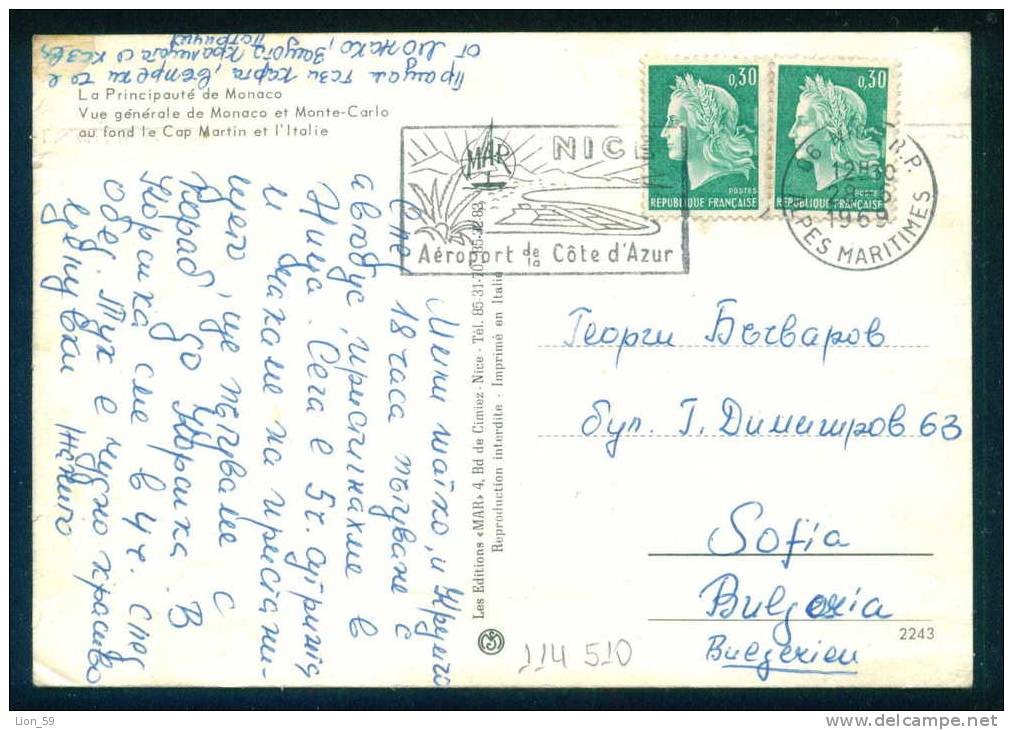 Пращам тази карта, въпреки че е
от Монако, защото
La Principauté de Monaco
Vue générale de Monaco et Monte-Carlo
au fond le Cap Martin et l'Italie
Мили майко, и
След 18 часа пътуване с
автобус, пристигнахме в
Ница. Сега е 5ч. сутринта
и чакаме на пристани-
щето, ще пътуваме с
кораб до Корсика. В
Корсика сме в 4ч. след
обед. Тук е чудно красиво
Целувки
Les Editions «MAR» 4, Bd de Cimiez - Nice - Tél. 85-31-70
Reproduction interdite - Imprimé en Italie
MAR
NICE
Aéroport de la Côte d'Azur
0,30
POSTES
REPUBLIQUE FRANÇAISE
0,30
POSTES
REPUBLIQUE FRANÇAISE
R.P.
12H30
1969
ALPES MARITIMES
Георги Бъчваров
бул. Г. Димитров 63
Sofia
Bulgaria
Bulgerien
2243
114 510
Lion_59
http://www.delcampe.net